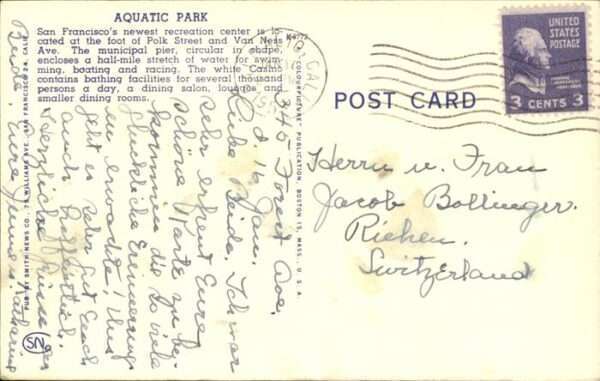 AQUATIC PARK
San Francisco's newest recreation center is lo-
cated at the foot of Polk Street and Van Ness
Ave. The municipal pier, circular in shape,
encloses a half-mile stretch of water for swim-
ming, boating and racing. The white Casino
contains bathing facilities for several thousand
persons a day, a dining salon, lounges and
smaller dining rooms.
POST CARD
UNITED
STATES
POSTAGE
3 CENTS 3
345 Forest Ave.
d. 16 Jan.
Liebe Beide. Ich war
sehr erfreut Eure
schöne Karte zu be-
kommen die so viele
glückliche Erinnerung
en erwachte! Uns
geht es sehr gut Euch
auch hoffentlich.
Herzliche Grüsse
Beide, Eure
Herrn u. Frau
Jacob Bollinger.
Riehen.
Switzerland
PUB. BY SMITH NEWS CO., WILLIAMS AVE., SAN FRANCISCO 24, CALIF.
"COLORPICTURE" PUBLICATION, BOSTON 15, MASS., U.S.A.
SN